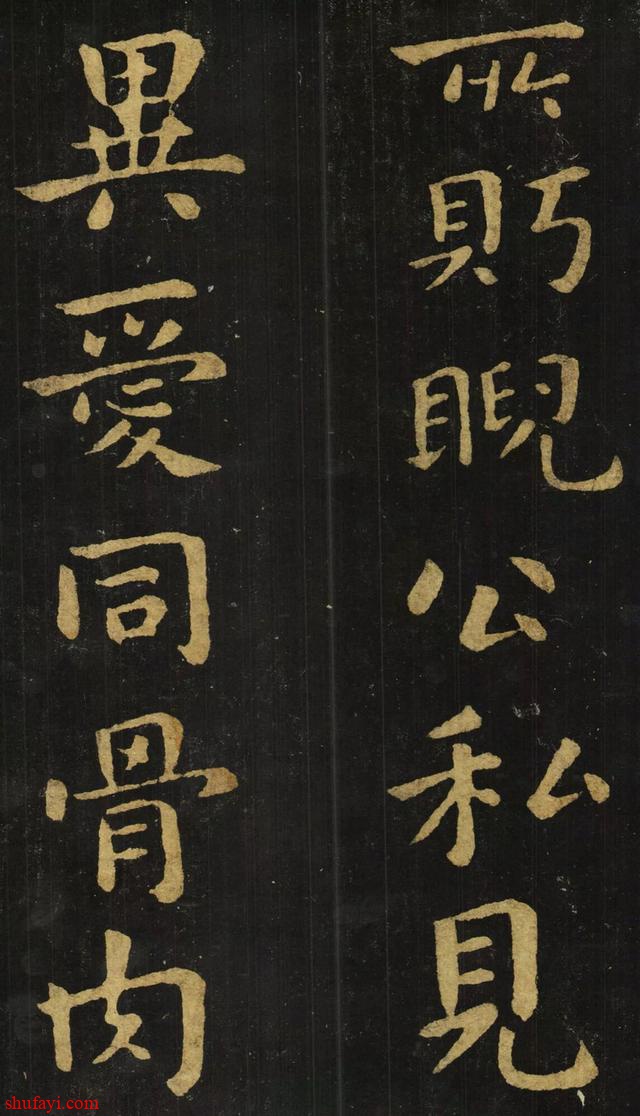 所睨公私見
異愛同骨肉
shufayi.com